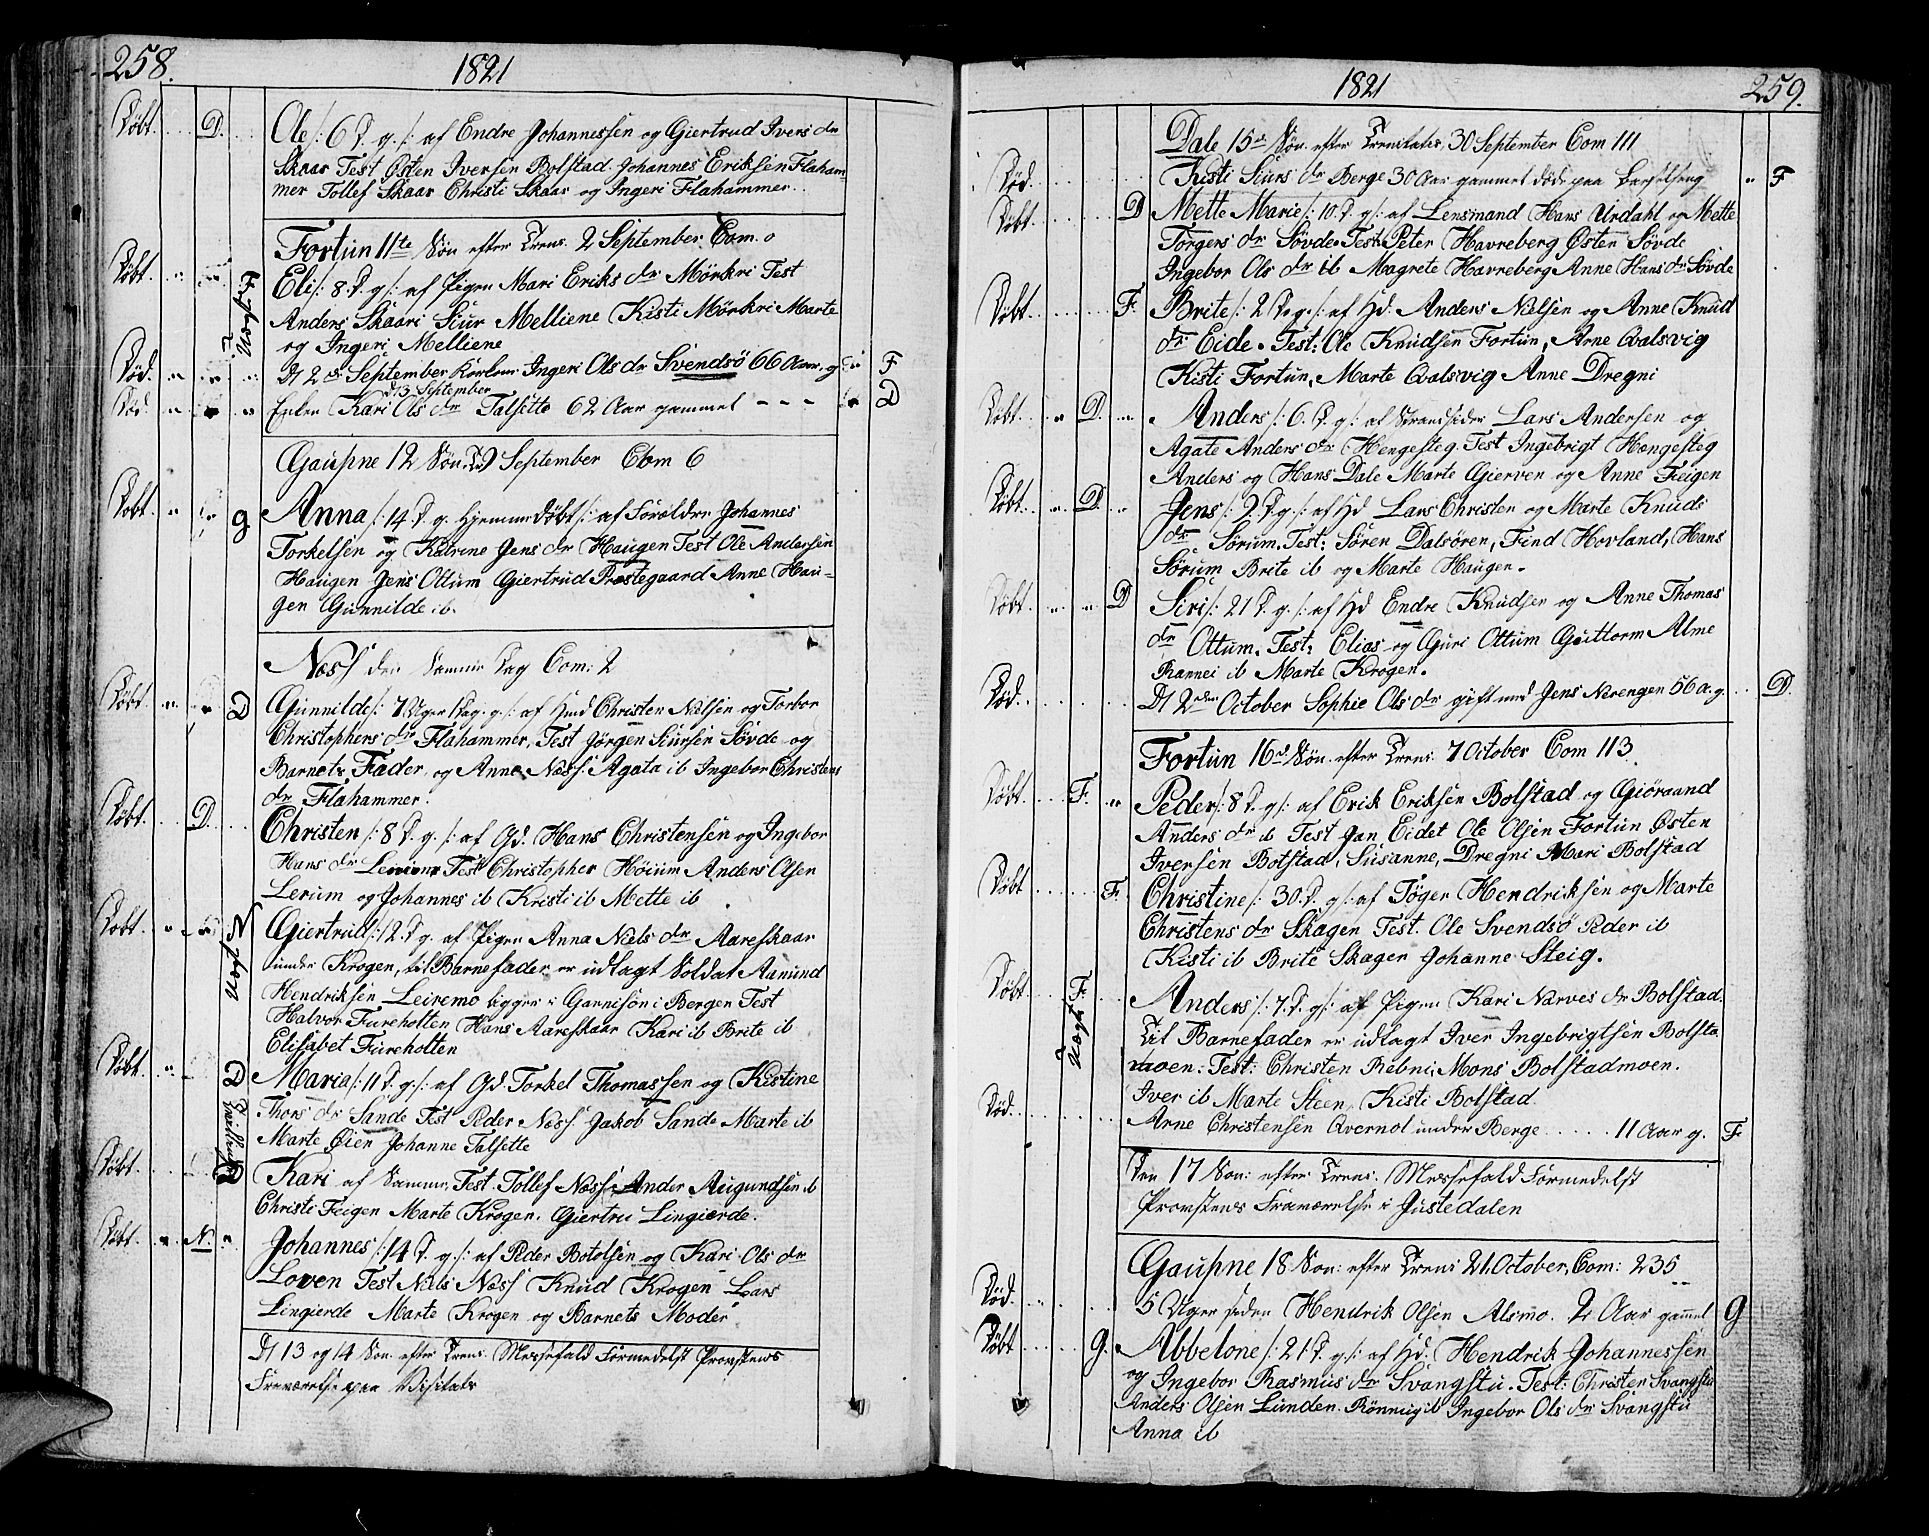 258.
1821
Døbt. D. Ole /: 6 D. g. /: af Endre Johannessen og Giertrud Ivers dr
Skaar Test Østen Iversen Bolstad. Johannes Eriksen Flaham-
mer Tollef Skaar Christi Skaar og Ingeri Flahammer.
Fortun 11te Søn efter Tren. 2 September Com. 0
Døbt. Uægt. F Eli /: 8. D. g /: af Pigen Mari Eriks dr Mörkri Test
Anders Skaari Siur Melliene Kisti Mörkri Marte
og Ingeri Melliene
Død. Dl 2 September Ingeri Ols dr Svendsö 66 Aar. g F
d 3 September
Død Enken Kari Ols dr Talsette 62 Aar gammel - - - D
Gaupne 12 Søn. 9 September Com 6
Døbt. g Anna /: 14 D. g. Hjemmedøbt /: af Forældre Johannes
Torkelsen og Katrine Jens dr Haugen Test Ole Andersen
Haugen Jens Ottum Giertrud Prestegaard Anne Hau-
gen Gunnilde ib.
Næss den samme Dag Com: 2
Døbt. D Gunnilde /: 7 Uger g. /: af Christen Nilsen og Torbor
Christophers dr Flahammer, Test Jörgen Siursen Sövde og
Barnets Fader, og Anne Næss. Agata ib Ingebor Christens
dr Flahammer.
Døbt. D. Christen /: 8 D. g. /: af Gd. Hans Christensen og Ingebor
Hans dr Test Christopher Höium Anders Olsen
Lerum og Johannes ib Kristi ib Mette ib
Døbt. Uægt N Giertrud /: 12. D g. af Pigen Anna Niels dr Aareskaar
under Krogen, til Barnefader er udlagt Soldat Aamund
Hendriksen Leiremo ligger i Garnison i Bergen Test
Halvor Fureholten Hans Aareskaar Kari ib Brite ib
Elisabet Fureholten
Døbt. D Maria /: 11 D. g. /: af Gd. Torkel Thomassen og Kistine
Tvillinger Thors dr Sande Test Peder Næss. Jakob Sande Marte ib
Marte Øien Johanne Talsette
Døbt. D Kari af Samme, Test. Tollef Næss Ander Augundsen ib
Christi Feigen Marte Krogen. Giertru Lingierde.
Døbt. N. Johannes /: 14 D. g. /: af Peder Botolsen og Kari Ols dr
Loven Test Niels Næss Knud Krogen Lars
Lingierde Marte Krogen og Barnets Moder.
Dl 13 og 14 Søn. efter Tren. Messefald Formedelst Provstens
Fraværelse paa Visitats
1821
259.
Dale 15de Søn. efter Trenitatis 30 September Com 111
Død. Kisti Siurs dr Berge 30 Aar gammel døde paa Barselseng F
Døbt. D Mette Marie /: 10. D. g /: af Lensmand Hans Urdahl og Mette
Torgers dr Sövde. Test. Peter Havreberg Østen Sövde
Ingebor Ols dr ib Magrete Havreberg Anne Hans dr Sövde
Døbt. F. Brite /: 2 D. g. /: af Hd. Anders Nielsen og Anne Knud
dr Eide. Test: Ole Knudsen Fortun, Arne Qvalsvig
Kisti Fortun, Marte Qvalsvig Anne Dregni
Døbt. D. Anders /: 6. D. g /: af Strandsider Lars Andersen og
Agate Anders dr Hengesteg. Test Ingebrigt Hængesteg
Anders og Hans Dale Marte Gierven og Anne Feigen
Døbt. D. Jens /: 2. D. g /: af Hd Lars Christen og Marte Knuds
dr Sørum. Test: Sören Dalsören, Find Hovland, Hans
Sørum Brite ib og Marte Haugen.
Døbt. D Siri /: 21 D. g. /: af Hd Endre Knudsen og Anne Thomas
dr Ottum. Test: Elias og Guri Ottum Guttorm Alme
Rannei ib Marte Krogen.
Død. Dl 2den October Sophie Ols dr gift med Jens Narengen 56 a. g. D.
Fortun 16de Søn. efter Tren. 7 October Com 113.
Døbt. F. Peder /: 8 D. g. /: af Erik Eriksen Bolstad og Giöraand
Anders dr ib Test Jan Eidet Ole Olsen Fortun Østen
Iversen Bolstad, Susanne, Dregni Mari Bolstad
Døbt F. Christine /: 30. D. g /: af Töger Hendriksen og Marte
Christens dr Skagen Test. Ole Svendsö Peder ib
Kisti ib Brite Skagen Johanne Steig.
Døbt. F. Uægte Anders /: 7. D. g /: af Pigen Kari Narves dr Bolstad.
Til Barnefader er udlagt Iver Ingebrigtsen Bolsta
moen. Test: Christen Rebni Mons Bolstadmoen.
Iver ib Marte Steen, Kisti Bolstad
Død. Arne Christensen Qvernol under Berge . . . . . 11 Aar g. F.
Den 17 Søn: efter Tren: Messefald Formedelst
Provstens Fraværelse i Justedalen
Gaupne 18 Søn: efter Tren: 21. October, Com: 235
Død. 5 Uger siden Hendrik Olsen Alsmo. 2 Aar gammel g
Døbt g. Abbelone /: 21 D. g. /: af Hd. Hendrik Johannessen
og Ingebor Rasmus dr Svangstu. Test: Christen Svangstu
Anders Olsen Lunden. Rönnug ib Ingebor Ols dr Svangstu
Anna ib